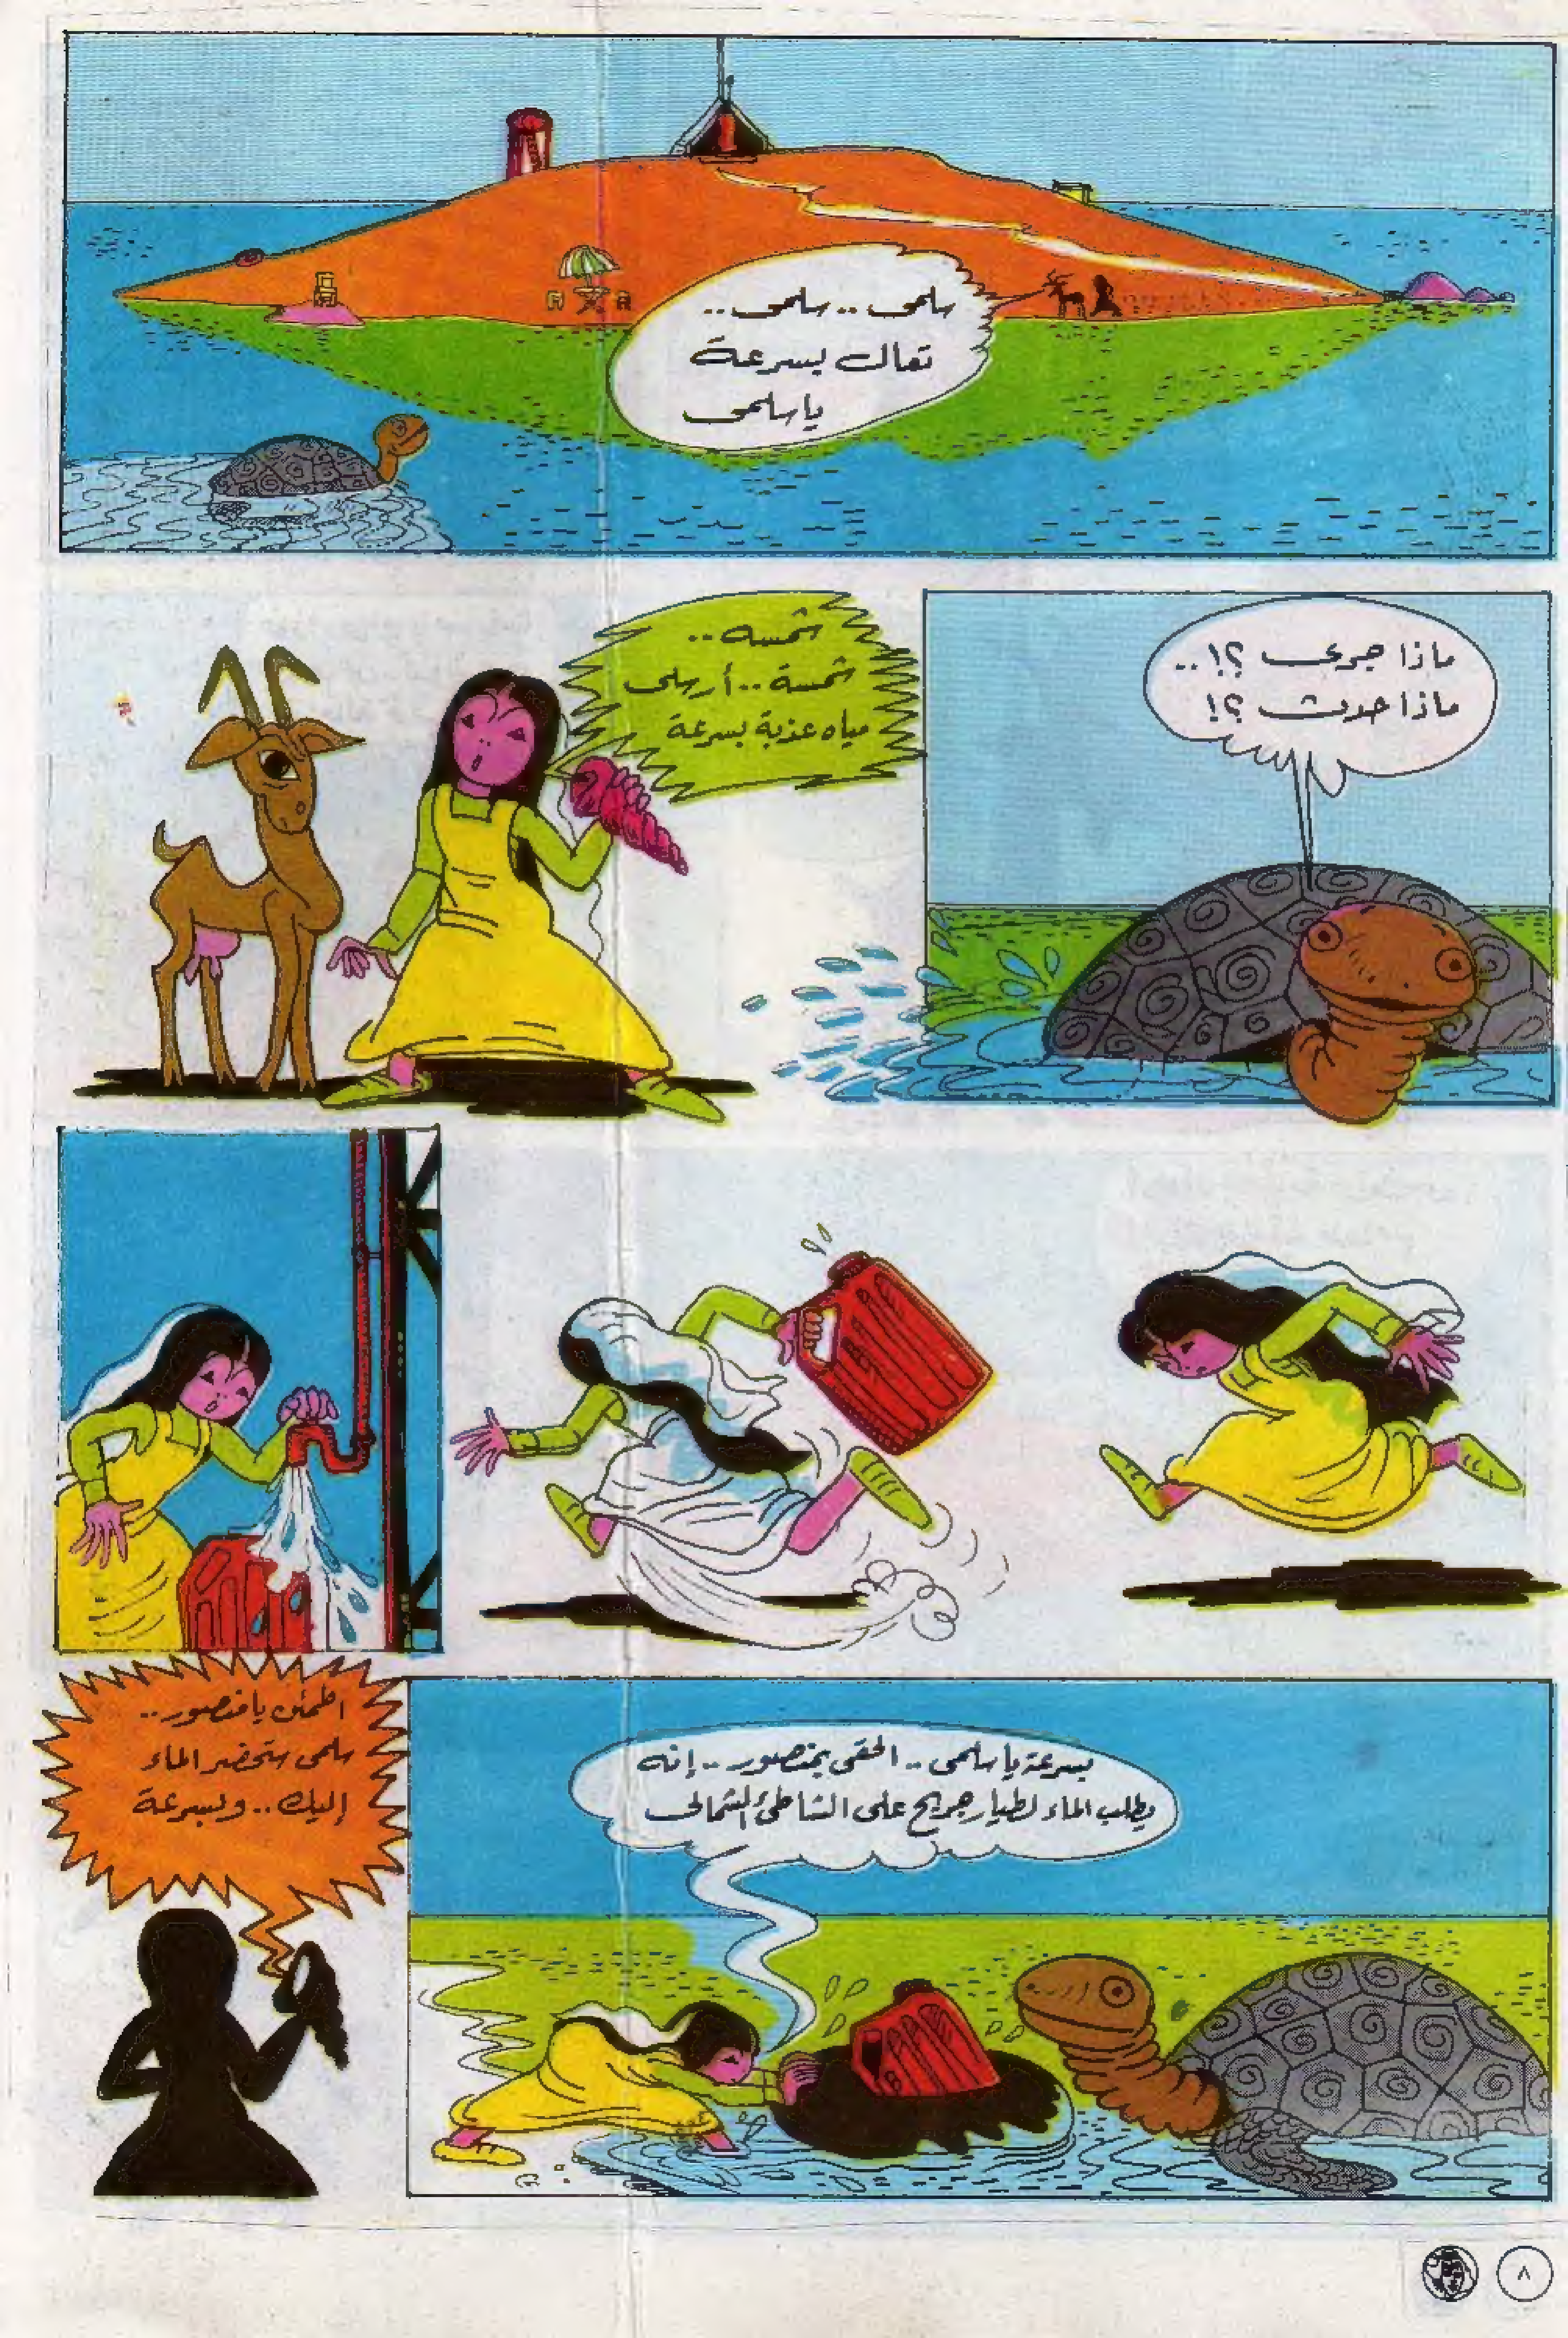 سلمى .. سلمى ..
تعالى بسرعة
ياسلمى
ماذا جرى ؟! ..
ماذا حدث ؟!
شمسه ..
شمسة .. أرسلى
مياه عذبة بسرعة
بسرعة ياسلمى .. الحقى بمنصور .. إنه
يطلب الماء لطيار جريح على الشاطئ الشمالى
اطمئن يامنصور ..
سلمى ستحضر الماء
إليك .. وبسرعة
٨